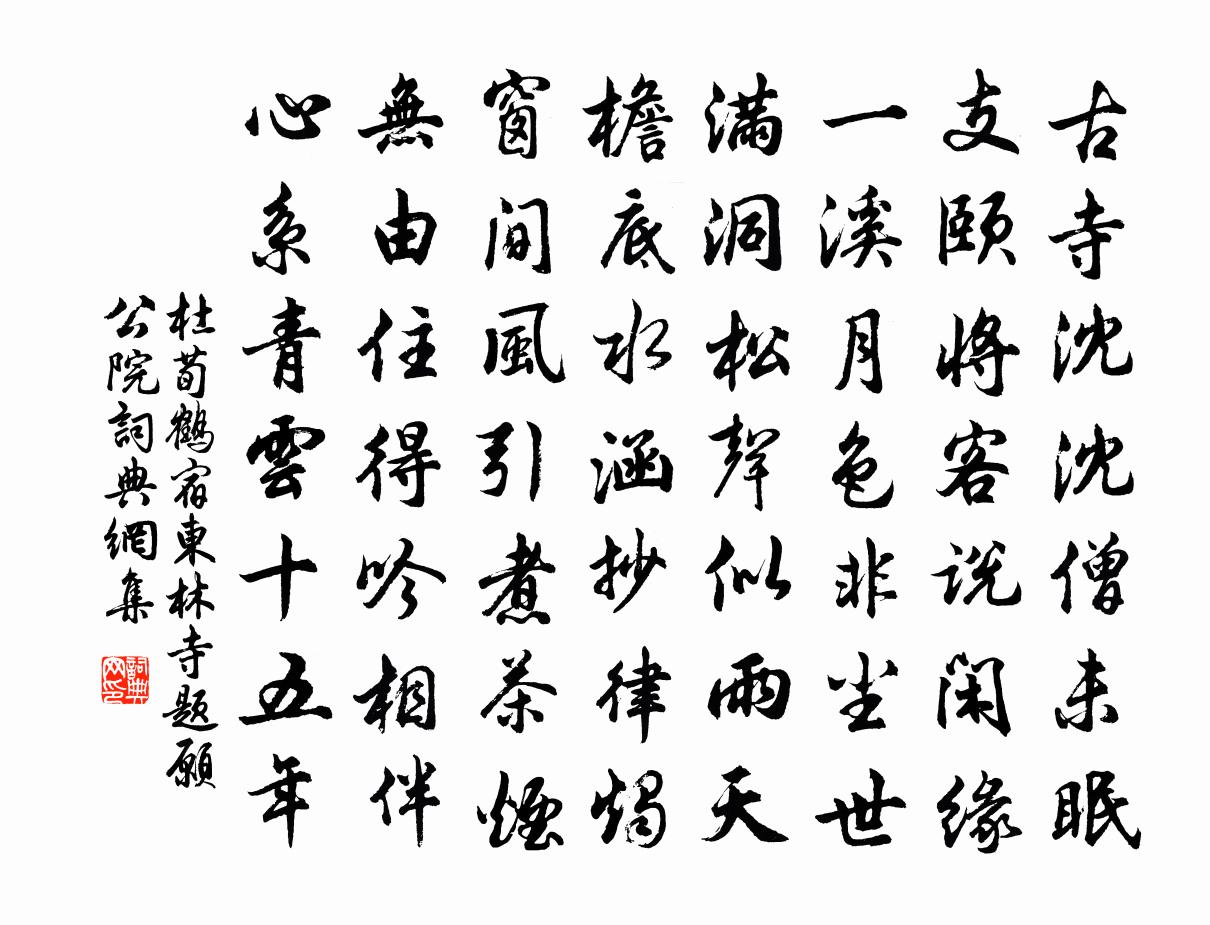 古寺沈沈僧未眠
支頤將客説閑緣
一溪月色非塵世
滿洞松聲似雨天
檐底水涵抄律燭
窗間風引煮茶煙
無由住得吟相伴
心系青雲十五年
杜荀鶴宿東林寺題願
公院詞典網集
詞典
网印